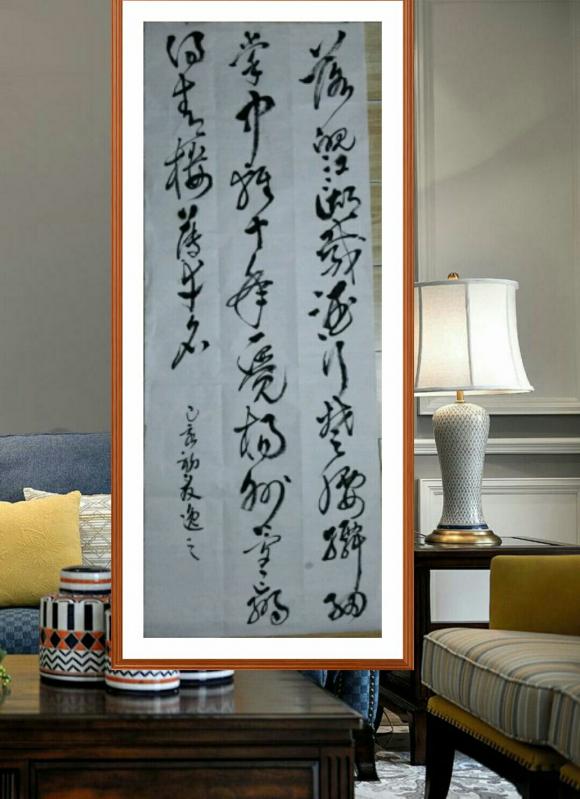 落魄江湖載酒行楚腰纖細
掌中輕十年一覺揚州夢贏
得青樓薄幸名
己亥初夏逸之